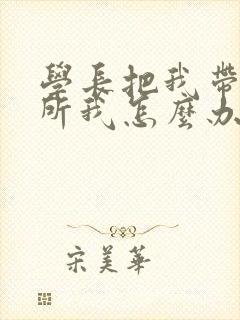 學長把我帶
所我怎麼办
宋美華